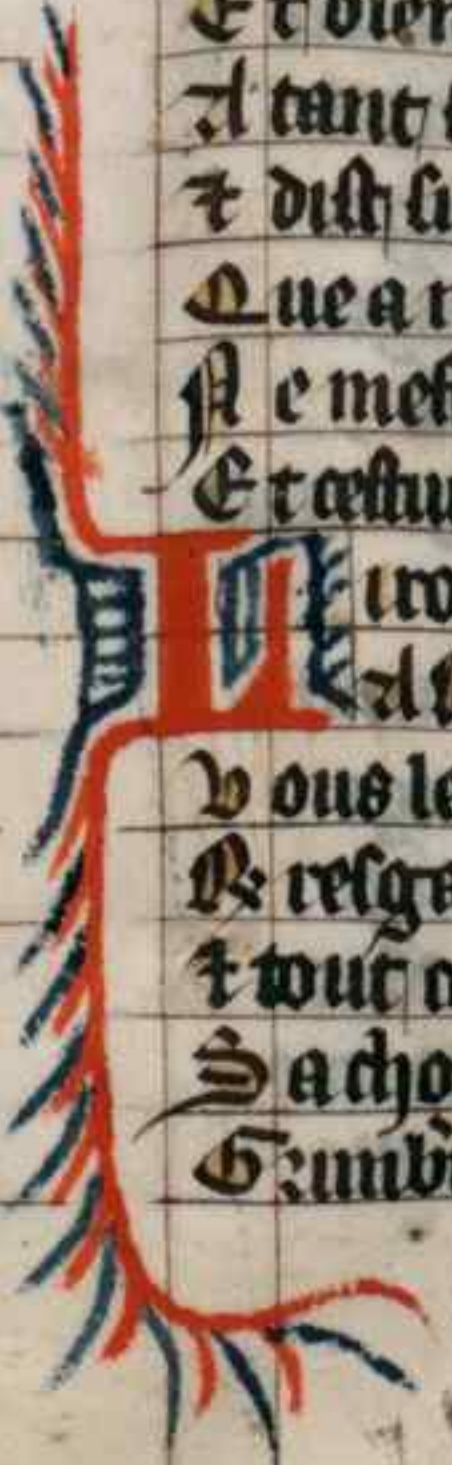 Et vien
A tant
⁊ dist
Que a
Ne mes
Et cestui
L iro
Al
Vous le
Resga
⁊ tout
Sacho
Grimb